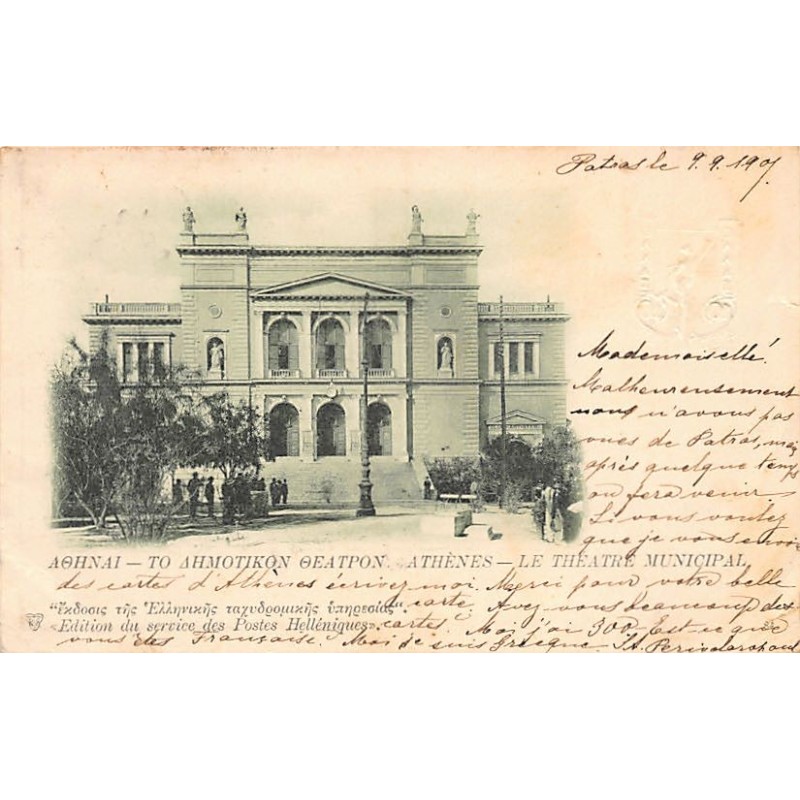 Patras le 9. 9. 190
Mademoiselle!
Malheureusement
nous n'avons pas
vues de Patras, mai
après quelque temps
on fera venir.
Si vous voulez
que je vous envoi
ΑΘΗΝΑΙ — ΤΟ ΔΗΜΟΤΙΚΟΝ ΘΕΑΤΡΟΝ. ATHÈNES — LE THÉATRE MUNICIPAL.
des cartes d'Athènes écrivez moi. Merci pour votre belle
"Ἔκδοσις τῆς Ἑλληνικῆς ταχυδρομικῆς ὑπηρεσίας".
carte. Avez vous beaucoup des
«Edition du service des Postes Helléniques».
cartes. Moi j'ai 300. Est-ce que
vous êtes Française. Moi je suis Grecque.